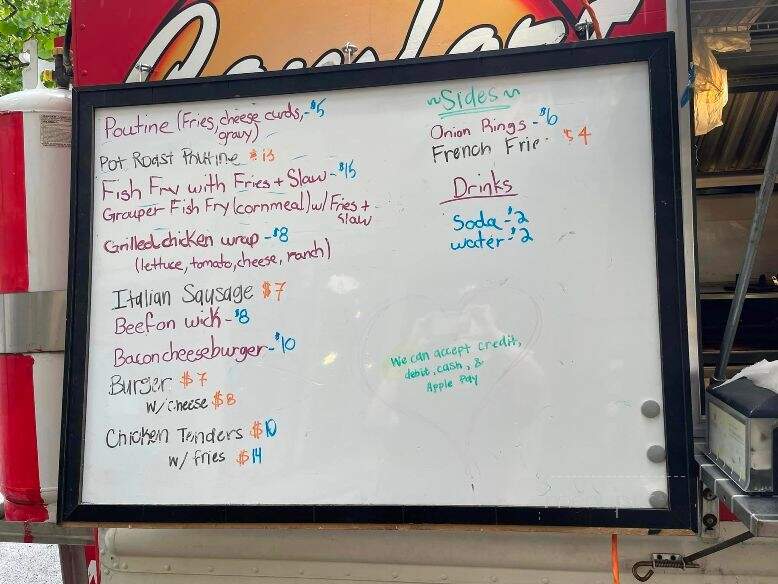 Comfort
Poutine (Fries, cheese curds, -$5
gravy)
Pot Roast Poutine $13
Fish Fry with Fries + Slaw - $15
Grouper Fish Fry (cornmeal) w/ Fries +
Slaw
Grilled chicken wrap - $8
(lettuce, tomato, cheese, ranch)
Italian Sausage $7
Beef on wick - $8
Bacon cheeseburger - $10
Burger $7
w/ cheese $8
Chicken Tenders $10
w/ fries $14
~Sides~
Onion Rings - $6
French Frie $4
Drinks
Soda - $2
water - $2
We can accept credit,
debit, cash, &
Apple Pay